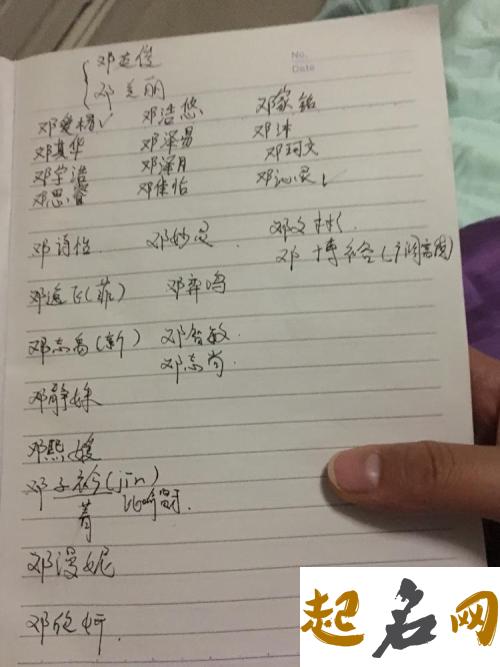 No.
Date
邓英俊
邓美丽
邓爱楠✓ 邓浩悠 邓家铭
邓其华 邓泽易 邓沐
邓宇浩 邓泽月 邓珂文
邓思睿 邓佳怡 邓沁灵✓
邓诗怡 邓妙灵 邓文彬
邓博
邓逸飞(菲) 邓弈鸣
邓志禹(新) 邓智敏
邓志尚
邓静姝
邓熙媛
邓子衿(jīn)
菁
邓漫妮
邓欣妍
起名网